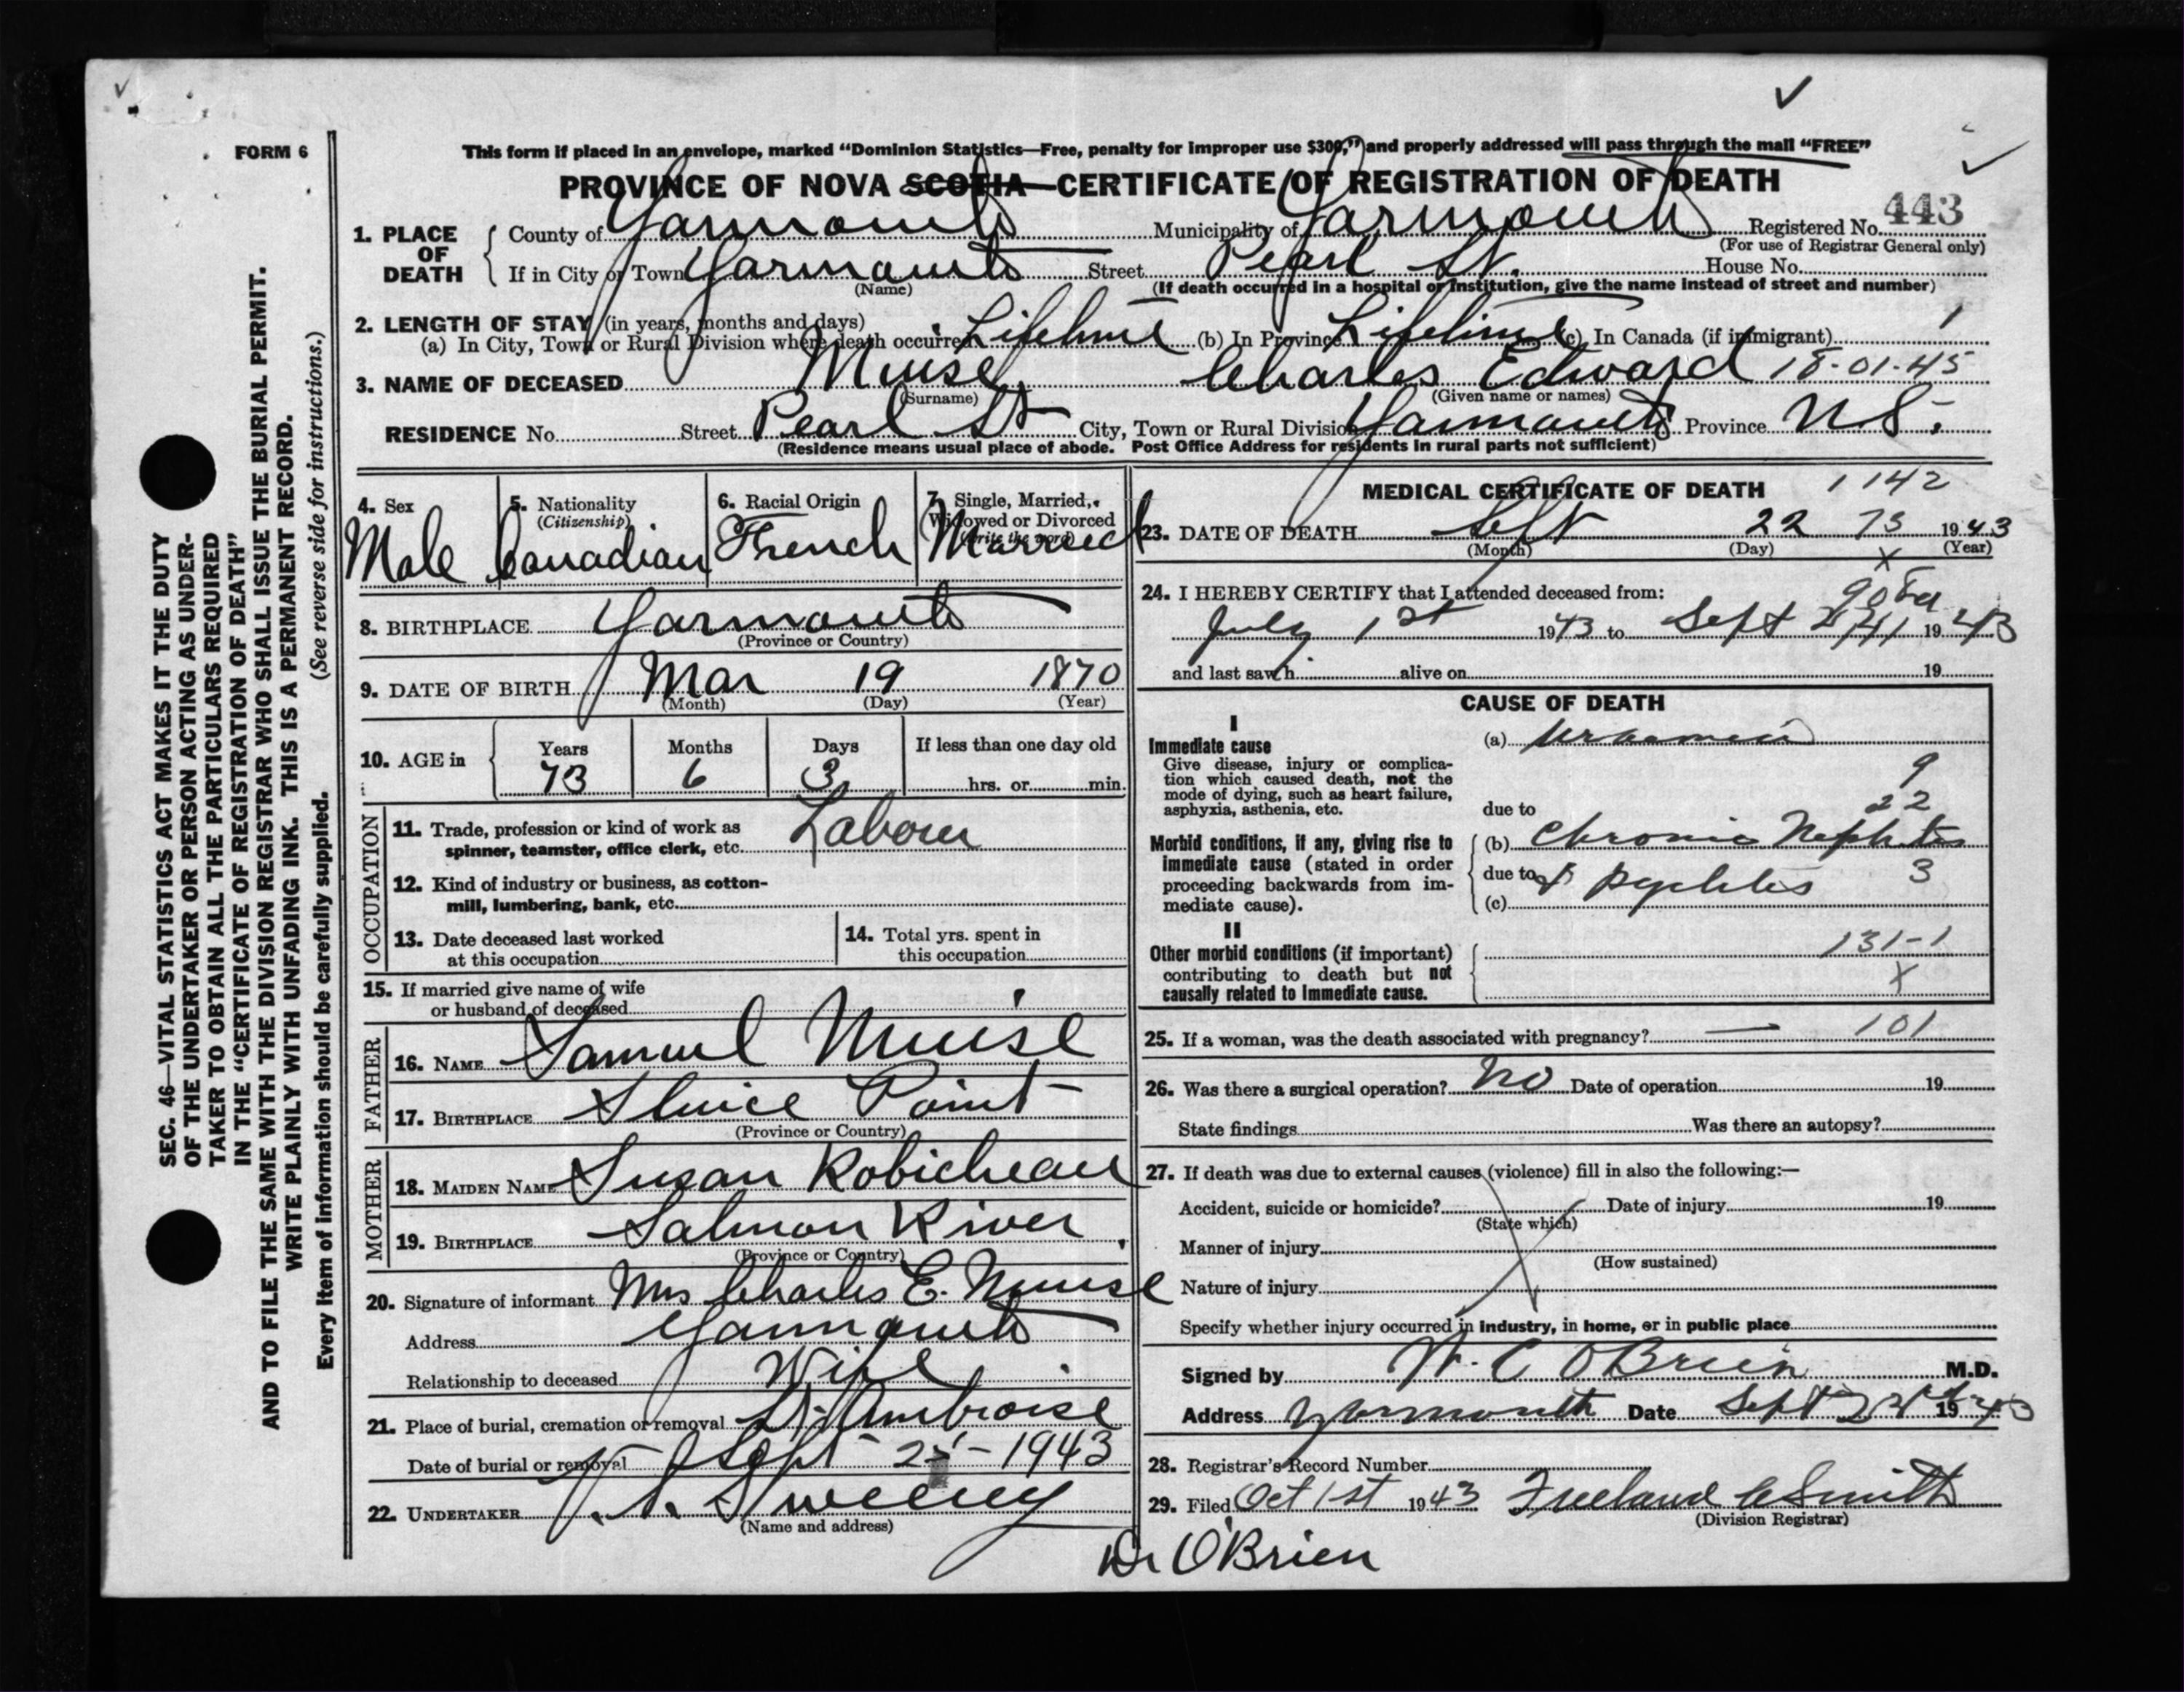 FORM 6
This form if placed in an envelope, marked "Dominion Statistics—Free, penalty for improper use $300," and properly addressed will pass through the mail "FREE"
PROVINCE OF NOVA SCOTIA—CERTIFICATE OF REGISTRATION OF DEATH
443
1. PLACE OF DEATH
County of Yarmouth Municipality of Yarmouth Registered No.
(For use of Registrar General only)
If in City or Town Yarmouth Street Pearl St. House No.
(Name) (If death occurred in a hospital or institution, give the name instead of street and number)
2. LENGTH OF STAY (in years, months and days)
(a) In City, Town or Rural Division where death occurred Lifetime (b) In Province Lifetime (c) In Canada (if immigrant)
3. NAME OF DECEASED Muise, Charles Edward 18-01-45
(Surname) (Given name or names)
RESIDENCE No. Street Pearl St City, Town or Rural Division Yarmouth Province N.S.
(Residence means usual place of abode. Post Office Address for residents in rural parts not sufficient)
4. Sex Male
5. Nationality (Citizenship) Canadian
6. Racial Origin French
7. Single, Married, Widowed or Divorced (write the word) Married
8. BIRTHPLACE Yarmouth
(Province or Country)
9. DATE OF BIRTH Mar 19 1870
(Month) (Day) (Year)
10. AGE in Years 73 Months 6 Days 3 If less than one day old hrs. or min.
OCCUPATION
11. Trade, profession or kind of work as spinner, teamster, office clerk, etc. Labour
12. Kind of industry or business, as cotton-mill, lumbering, bank, etc.
13. Date deceased last worked at this occupation
14. Total yrs. spent in this occupation
15. If married give name of wife or husband of deceased
FATHER
16. NAME Samuel Muise
17. BIRTHPLACE Sluice Point
(Province or Country)
MOTHER
18. MAIDEN NAME Susan Robicheau
19. BIRTHPLACE Salmon River
(Province or Country)
20. Signature of informant Mrs Charles E. Muise
Address Yarmouth
Relationship to deceased Wife
21. Place of burial, cremation or removal St. Ambroise
Date of burial or removal Sept 25 - 1943
22. UNDERTAKER V. S. Sweeney
(Name and address)
MEDICAL CERTIFICATE OF DEATH 1142
23. DATE OF DEATH Sept 22 73 1943
(Month) (Day) (Year)
X
24. I HEREBY CERTIFY that I attended deceased from:
July 1st 1943 to Sept 1943
and last saw h alive on 19
CAUSE OF DEATH
I
Immediate cause
Give disease, injury or complication which caused death, not the mode of dying, such as heart failure, asphyxia, asthenia, etc.
(a) Uraemia
9
22
due to
Morbid conditions, if any, giving rise to immediate cause (stated in order proceeding backwards from immediate cause).
(b) Chronic Nephritis
due to & Pyelitis 3
(c)
II
Other morbid conditions (if important) contributing to death but not causally related to immediate cause.
131-1
X
25. If a woman, was the death associated with pregnancy? — 101
26. Was there a surgical operation? No Date of operation 19
State findings Was there an autopsy?
27. If death was due to external causes (violence) fill in also the following:—
Accident, suicide or homicide? Date of injury 19
(State which)
Manner of injury
(How sustained)
Nature of injury
Specify whether injury occurred in industry, in home, or in public place
Signed by W. C O'Brien M.D.
Address Yarmouth Date Sept 1943
28. Registrar's Record Number
29. Filed Oct 1st 1943 Freeland C Smith
(Division Registrar)
Dr O'Brien
SEC. 46—VITAL STATISTICS ACT MAKES IT THE DUTY
OF THE UNDERTAKER OR PERSON ACTING AS UNDER-
TAKER TO OBTAIN ALL THE PARTICULARS REQUIRED
IN THE "CERTIFICATE OF REGISTRATION OF DEATH"
AND TO FILE THE SAME WITH THE DIVISION REGISTRAR WHO SHALL ISSUE THE BURIAL PERMIT.
WRITE PLAINLY WITH UNFADING INK. THIS IS A PERMANENT RECORD.
Every item of information should be carefully supplied. (See reverse side for instructions.)